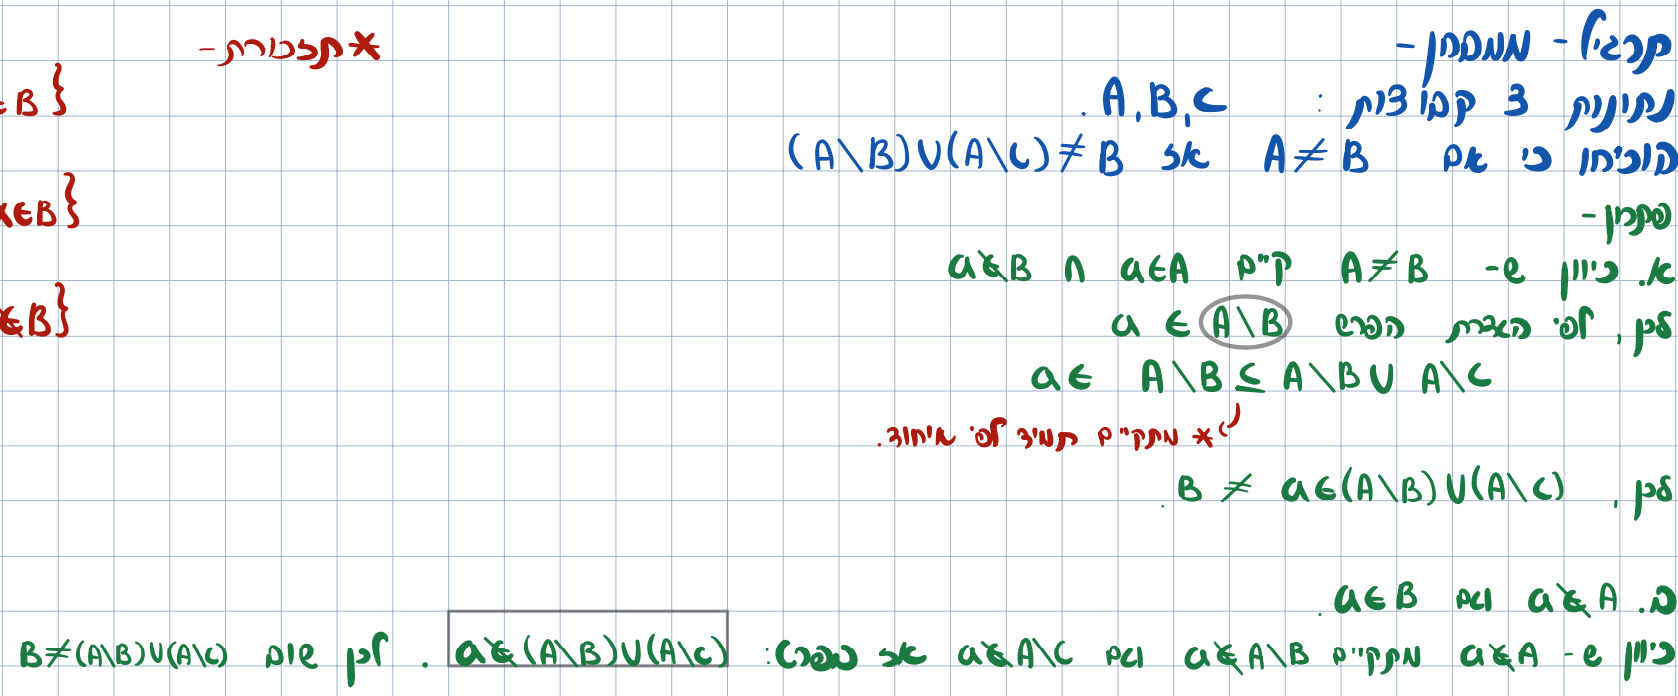 תרגיל - ממבחן -
נתונות 3 קבוצות : A,B,C.
הוכיחו כי אם A≠B אז (A\B)∪(A\C)≠B
פתרון -
א. כיוון ש- A≠B קיים a∈A ∩ a∉B
לכן, לפי הגדרת הפרש a ∈ A\B
a∈ A\B ⊆ A\B ∪ A\C
* מתקיים תמיד לפי איחוד.
לכן, B ≠ a∈(A\B)∪(A\C).
ב. a∉A וגם a∈B.
כיוון ש- a∉A מתקיים a∉A\B וגם a∉A\C אז בפרט: a∉(A\B)∪(A\C). לכן שוב B≠(A\B)∪(A\C)
*תזכורת -
∈B}
x∈B}
∉B}